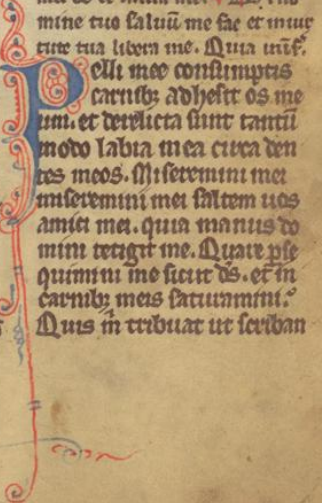 mine tuo saluū me fac et in iur
ture tua libera me. Quia
Pelli mee consumptis
carnibꝫ adhesit os me
um. et derelicta sunt tantū
modo labia mea circa den
tes meos. Miseremini mei
miseremini mei saltem uos
amici mei. quia manus do
mini tetigit me. Quare pse
quimini me sicut ds̄. et in
carnibꝫ meis saturamini.
Quis m̄ tribuat ut scriban